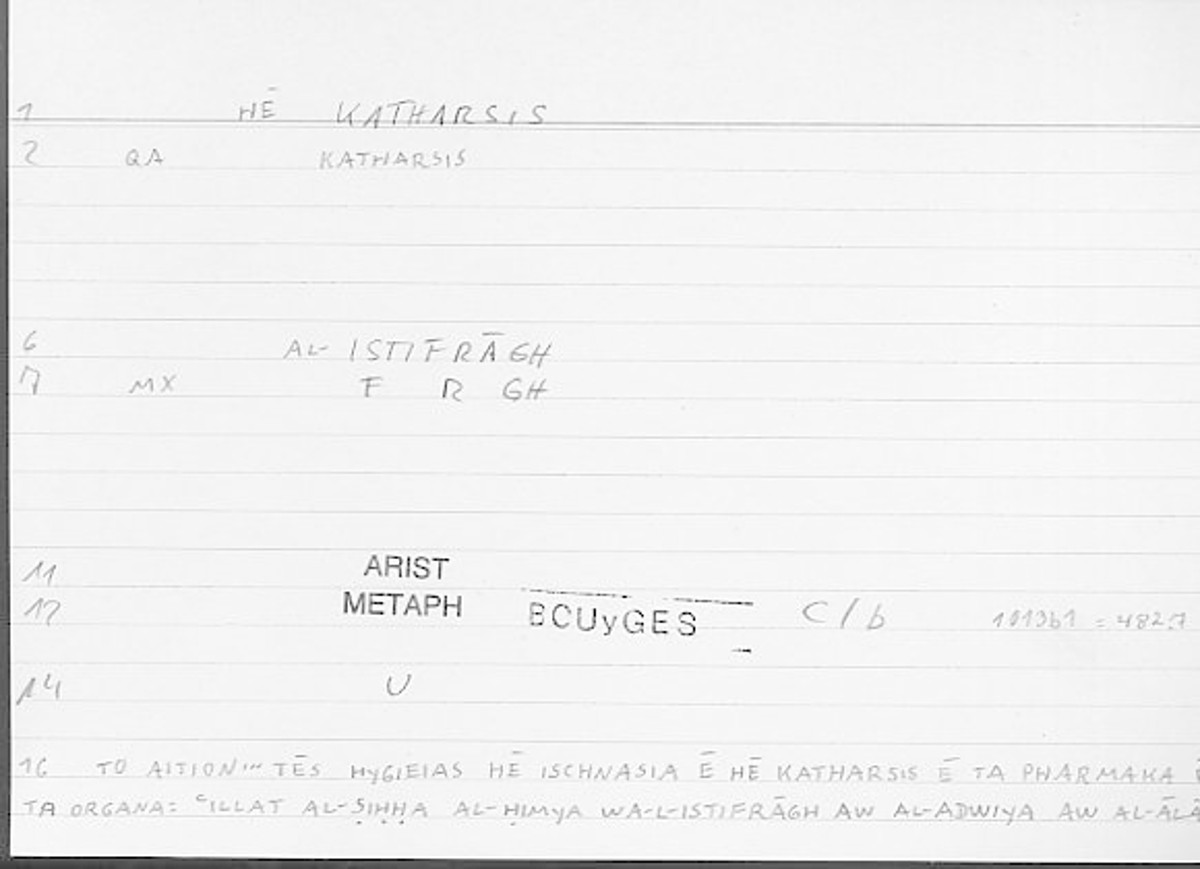 1 HĒ KATHARSIS
2 QA KATHARSIS
6 AL-ISTIFRĀGH
7 MX F R GH
11 ARIST
12 METAPH BCUyGES C/b 1013b1 = 482.7
14 U
16 TO AITION... TĒS HyGIEIAS HĒ ISCHNASIA Ē HĒ KATHARSIS Ē TA PHARMAKA Ē
TA ORGANA: ʿILLAT AL-ṢIḤḤA AL-ḤIMyA WA-L-ISTIFRĀGH AW AL-ADWIyA AW AL-ĀLĀ